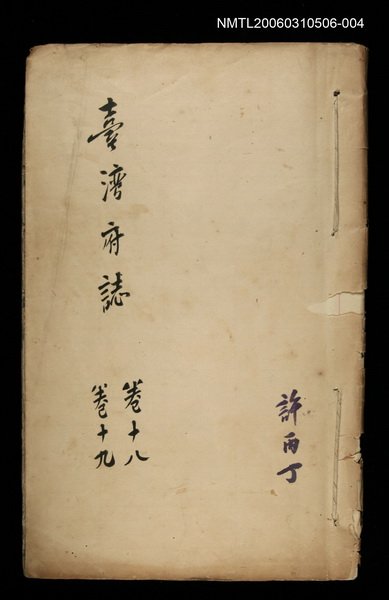 NMTL20060310506-004
許丙丁
臺湾府誌
卷十八
卷十九